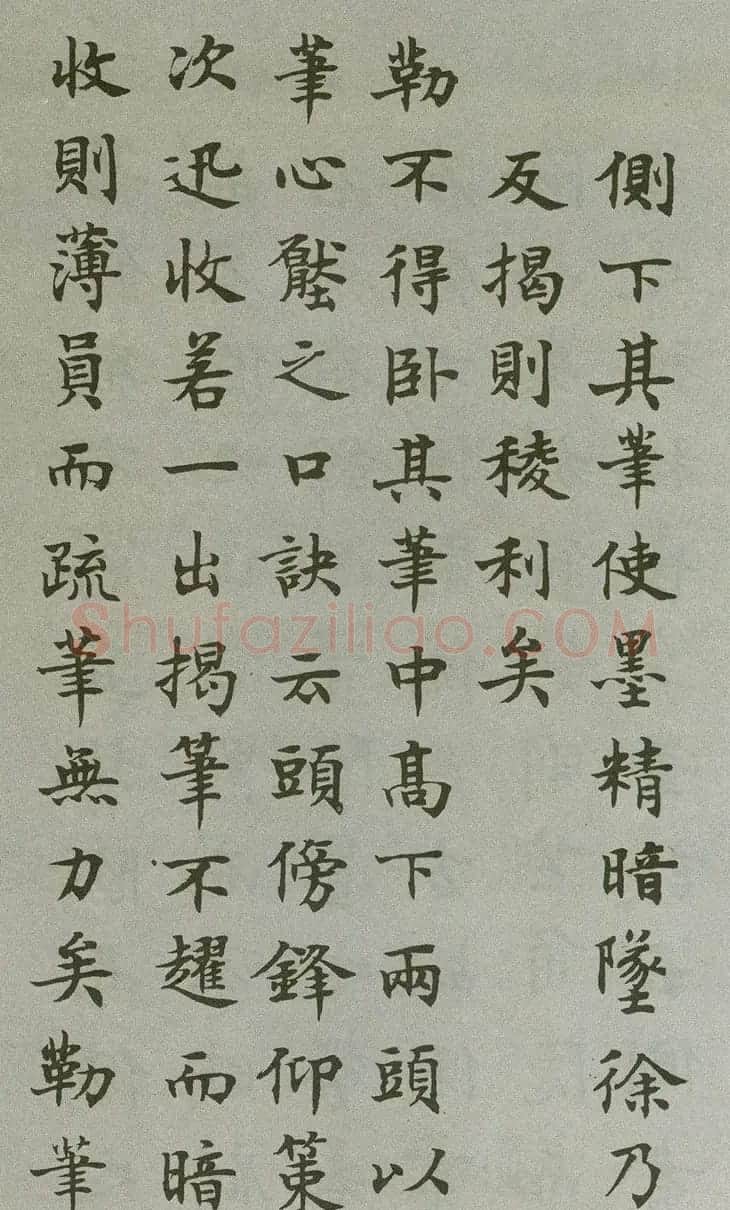 側下其筆使墨精暗墜徐乃
反揭則稜利矣
勒不得卧其筆中高下兩頭以
筆心壓之口訣云頭傍鋒仰策
次迅收若一出揭筆不趯而暗
收則薄員而疏筆無力矣勒筆
Shufaziliao.COM